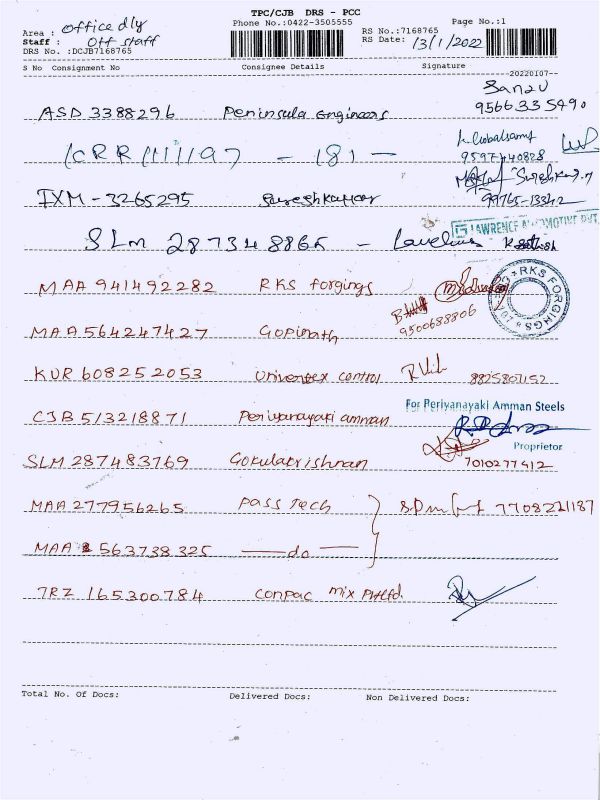 TPC/CJB DRS - PCC
Area : office dly
Phone No.:0422-3505555
RS No.:7168765
Page No.:1
Staff : Off staff
RS Date: 13/1/2022
DRS No. :DCJB7168765
S No Consignment No Consignee Details Signature
20220107
ASD 3388296 Peninsula Engineers
9566335490
9597440828
IXM - 3265295 Sureshkumar
99765-13342
LAWRENCE AUTOMOTIVE PVT.
SLM 287348865 -
MAA 941492282 RKS forgings
RKS FORGINGS
MAA 564247427 Gopinath
9500688806
KUR 608252053 control
8825807152
For Periyanayaki Amman Steels
CJB 513218871 Periyanayaki amman
Proprietor
SLM 287483769 Gokulakrishnan 7010277412
MAA 277956265 Pass Tech 7708221187
MAA 563738325 — do —
TRZ 165300784 Conpac mix Pvt Ltd.
Total No. Of Docs: Delivered Docs: Non Delivered Docs: